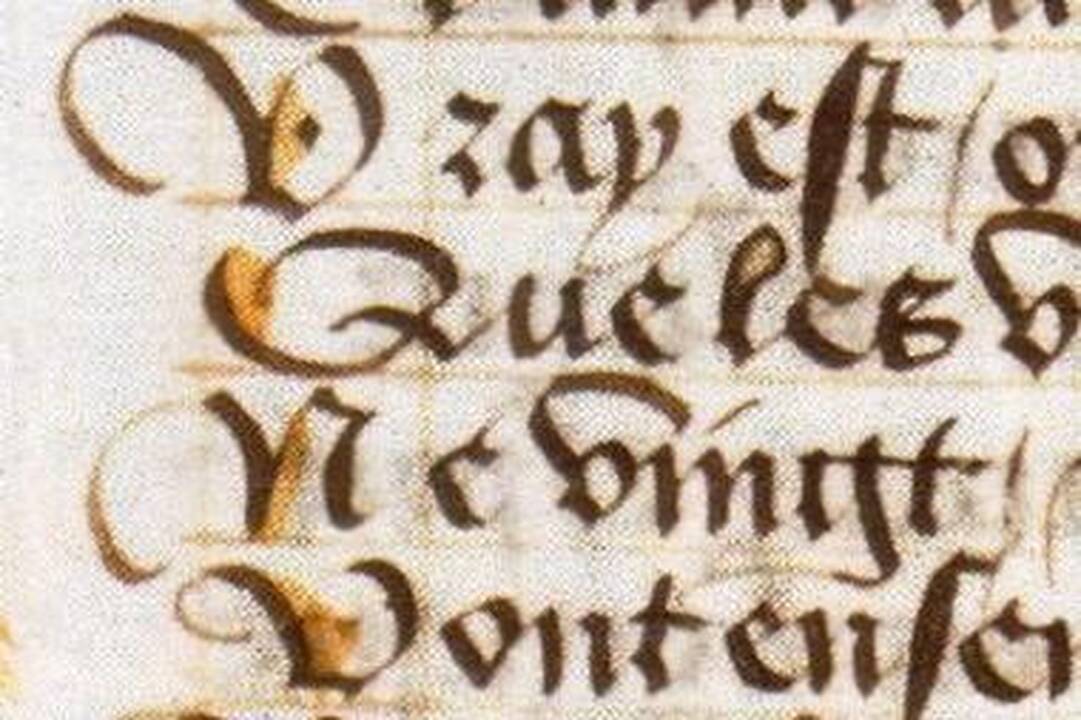 Vray est / o
Que les v
Ne vingt /
Vont ensen